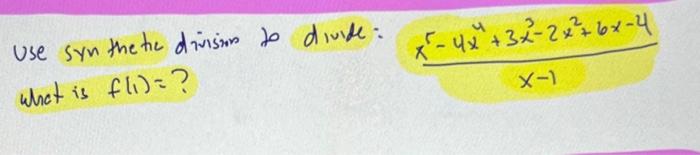 Use synthetic division to divide: (x^5 - 4x^4 + 3x^3 - 2x^2 + 6x - 4)/(x - 1)
what is f(1) = ?